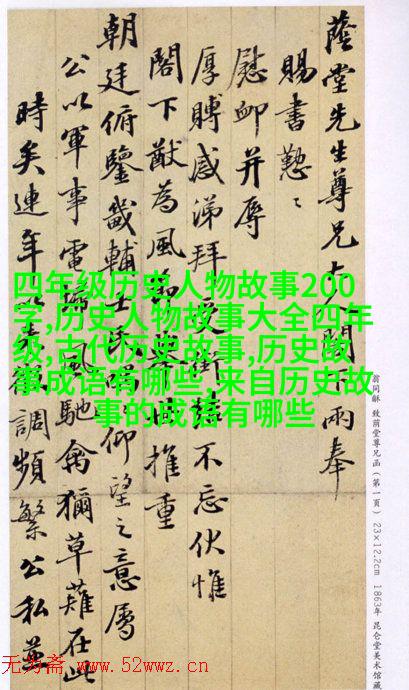 蔭堂先生尊兄大人閣下兩奉
賜書懃〻
慰卹并辱
厚賻感涕拜受銜結不忘伏惟
閣下猷為風推重
朝廷俯鑒畿輔士民仰望之意屬
公以軍事電掃風馳禽獮草薙在此
時矣連年以來調頻繁公私並
四年级历史人物故事200
字,历史人物故事大全四年
级,古代历史故事,历史故
事成语有哪些,来自历史故
事的成语有哪些
翁同龢 致蔭堂尊兄函（第一頁） 23×12.2cm 1863年 昆仑堂美术馆藏
无为斋 www.52wwz.cn